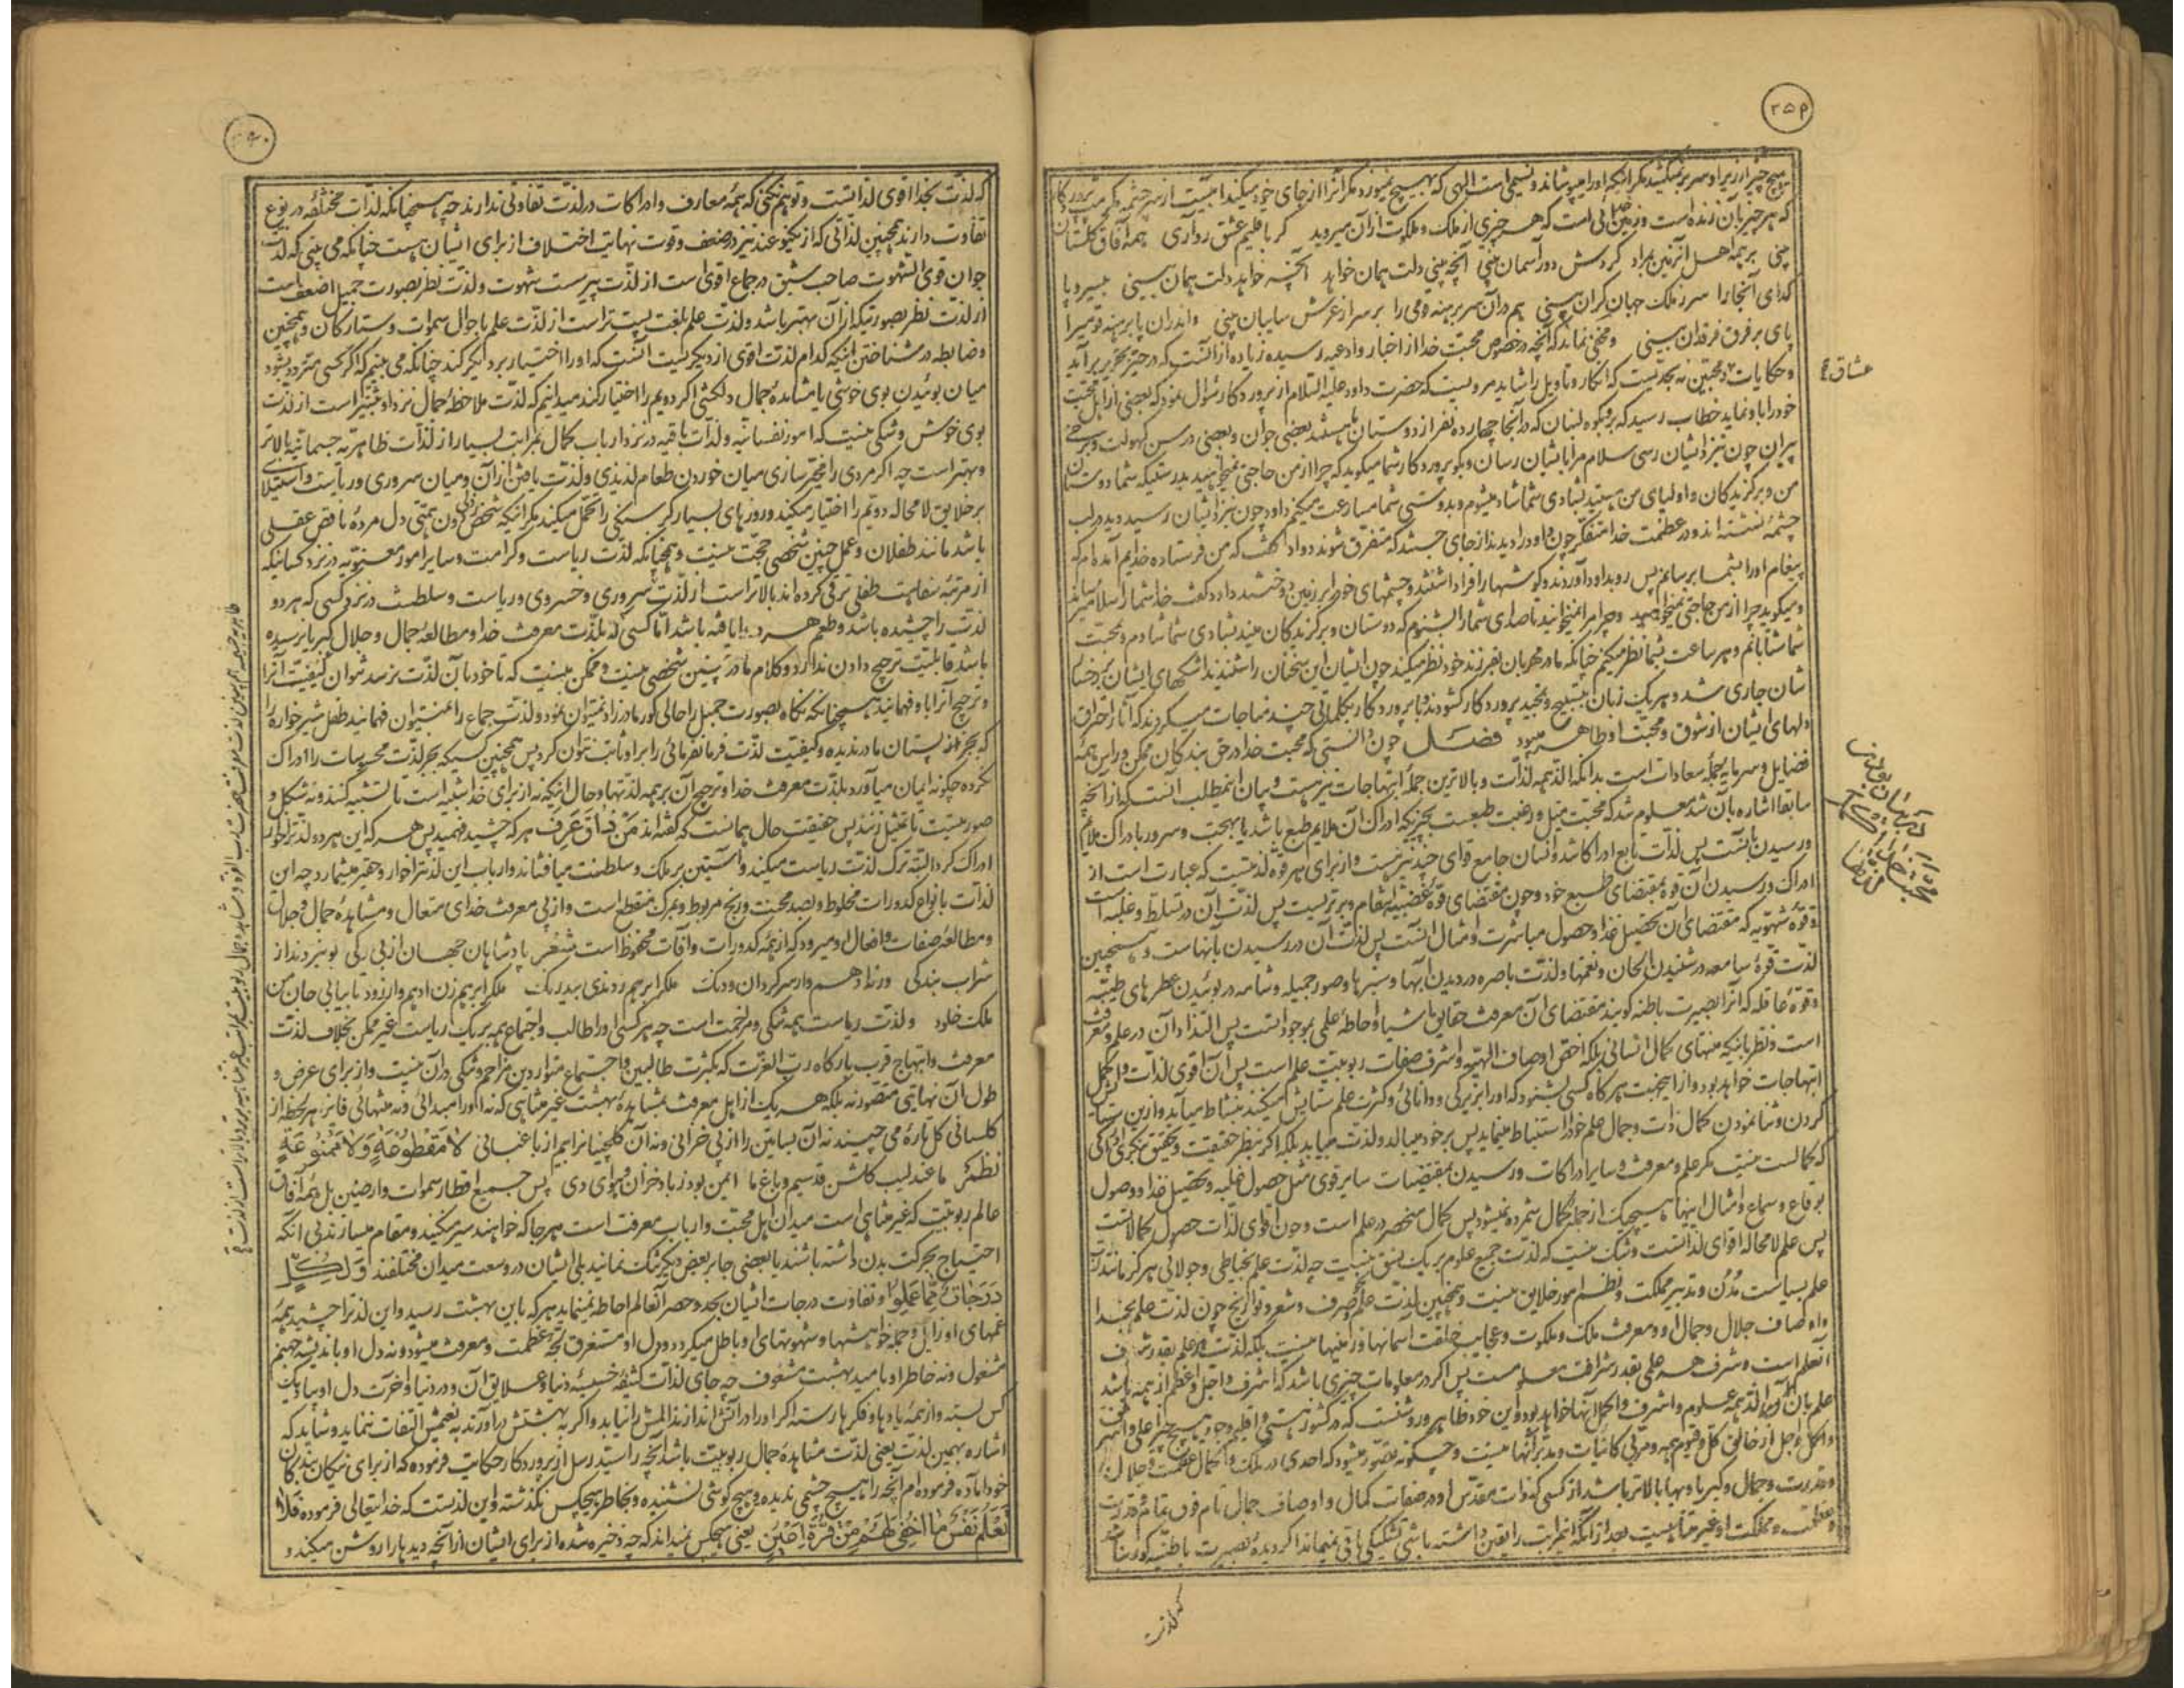 ۳۵۹
هیچ چیز از زیر او سر بر نمیکشد مگر اینکه او را میپوشاند و نسیمی است الهی که بهیچ نمیوزد مگر آنرا از جای خود میکند
که هر چیز بآن زنده است و زمین که هر چیزی از ملک و ملکوت از آن میروید گر باقلیم عشق رو آری همه آفاق گلستان
بینی بر همه اهل آنزمین بمراد گردش دور آسمان بینی آنچه بینی دلت همان خواهد آنچه خواهد دلت همان بینی بیسر و پا
گدای آنجا را سر ز ملک جهان گران بینی هم در آن سر برهنه قومی را بر سر از عرش سایبان بینی واندران پا برهنه قومیرا
پای بر فرق فرقدان بینی و مخفی نماند که آنچه در خصوص محبت خدا از اخبار و ادعیه رسیده زیاده از آنست که در حیز تحریر برآید
و حکایات محبین نه بحدیست که انکار و تاویل را شاید مرویست که حضرت داود علیه السلام از پروردگار سؤال نمود که بعضی از اهل محبت
خود را باو نماید خطاب رسید که برو بکوه لبنان که در آنجا چهارده نفر از دوستان ما هستند بعضی جوان و بعضی در سن کهولت و برخی
پیران چون بنزد ایشان رسی سلام مرا بایشان رسان و بگو پروردگار شما میگوید که چرا از من حاجتی نمیخواهید بدرستیکه شما دوستان
من و برگزیدگان و اولیای من هستید بشادی شما شاد میشوم و بدوستی شما مسارعت میکنم داود چون بنزد ایشان رسید دید در لب
چشمه نشسته اند و در عظمت خدا متفکر چون داود را دیدند از جای جستند که متفرق شوند داود گفت که من فرستاده خدایم آمده ام که
پیغام او را بشما برسانم پس رو بداود آوردند و گوشها را فرا داشتند و چشمهای خود را بر زمین دوختند داود گفت خدا شما را سلام میرساند
و میگوید چرا از من حاجتی نمیخواهید و چرا مرا نمیخوانید تا صدای شما را بشنوم که دوستان و برگزیدگان منید بشادی شما شادم و بمحبت
شما شتابانم و هر ساعت بشما نظر میکنم چنانکه مادر مهربان بفرزند خود نظر میکند چون ایشان این سخنان را شنیدند اشکهای ایشان بر رخسار
شان جاری شد و هر یک زبان بتسبیح و تمجید پروردگار گشودند و با پروردگار بکلماتی چند مناجات میکردند که آثار احتراق
دلهای ایشان از شوق و محبت او ظاهر میبود فصل چون دانستی که محبت خدا در حق بندگان ممکن و راس همه
فضایل و سرمایه جمله سعادات است بدانکه الذ همه لذات و بالاترین جمله ابتهاجات نیز هست و بیان اینمطلب آنست که از آنچه
سابقا اشاره بآن شد معلوم شد که محبت میل و رغبت طبعست بچیزیکه ادراک آن ملایم طبع باشد یا بهجت و سرور بادراک ملایم
و رسیدن بآنست پس لذت تابع ادراکات باشد و انسان جامع قوای چندیست و از برای هر قوه لذتیست که عبارت است از
ادراک و رسیدن آن قوه بمقتضای طبع خود و چون مقتضای قوه غضبیه انتقام و برتریست پس لذت آن در تسلط و غلبه است
و قوه شهویه که مقتضای آن تحصیل غذا و حصول مباشرت و امثال آنست پس لذت آن در رسیدن بآنهاست و همچنین
لذت قوه سامعه در شنیدن الحان و نغمها و لذت باصره در دیدن آبها و سبزها و صور جمیله و شامه در بوئیدن عطرهای طیبه
و قوه عاقله که آنرا بصیرت باطنه گویند مقتضای آن معرفت حقایق اشیا و احاطه علمی بموجوداتست پس التذاذ آن در علم و معرفت
است و نظر باینکه منتهای کمال انسانی بلکه اخص اوصاف الهیه و اشرف صفات ربوبیت علم است پس آن اقوی لذات و اکمل
ابتهاجات خواهد بود و از اینجهت هر گاه کسی بشنود که او را بزیرکی و دانائی و کثرت علم ستایش میکنند بنشاط میآید و از این ستایش
کردن و ثنا نمودن کمال ذات و جمال علم خود را استنباط مینماید پس بر خود میبالد و لذت میابد بلکه اگر بنظر حقیقت و تحقیق بنگری
که کمالیت نیست مگر علم و معرفت و سایر ادراکات و رسیدن بمقتضیات سایر قوی مثل حصول غلبه و تحصیل غذا و وصول
بوقاع و سماع و امثال اینها هیچیک از جمله کمال شمرده نمیشود پس کمال منحصر در علم است و چون اقوی لذات حصول کمالاتست
پس علم لا محاله اقوای لذاتست و شک نیست که لذت جمیع علوم بر یک نسق نیست چه لذت علم بخیاطی و جولائی هرگز مانند لذت
علم بسیاست مدن و تدبیر مملکت و نظم امور خلایق نیست و همچنین لذت علم صرف و شعر و تواریخ چون لذت علم بخدا
و اوصاف جلال و جمال او و معرفت ملک و ملکوت و عجایب خلقت آسمانها و زمینها نیست بلکه لذت هر علم بقدر شرف
آنعلم است و شرف هر علمی بقدر شرافت معلومست پس اگر در معلومات چیزی باشد که اشرف و اجل و اعظم از همه باشد
علم بآن الذ همه علوم و اشرف و اکمل آنها خواهد بود و این خود ظاهر و روشنست که در کشور هستی و اقلیم وجود هیچ چیز اعلی و اشرف
و اکمل و اجل از خالق کل و قیوم همه و مربی کاینات و مدبر آنها نیست و چگونه تصور میشود که احدی در ملک و کمال عظمت و جلال
و قدرت و جمال و کبریا و بها بالاتر باشد از کسی که ذات مقدس او در صفات کمال و اوصاف جمال تام فوق تمام و قدرت
و عظمت و مملکت او غیر متناهیست بعد از آنکه اینمراتب را یقین داشته باشی تشکیکی باقی نمیماند اگر دیده بصیرت باطنیه کور نباشد
که لذت
عشاق
۳۶۰
که لذت بخدا اقوی لذاتست و توهم نکنی که همه معارف و ادراکات در لذت تفاوتی ندارند چه همچنانکه لذات مختلفه در نوع
تفاوت دارند همچنین لذاتی که از یکنوعند نیز در ضعف و قوت نهایت اختلاف از برای ایشان هست چنانکه می بینی که لذت
جوان قوی الشهوت صاحب شبق در جماع اقوی است از لذت پیر سست شهوت و لذت نظر بصورت جمیل اضعف است
از لذت نظر بصورتیکه از آن بهتر باشد و لذت علم بلغت پست تر است از لذت علم باحوال سموات و ستارگان و همچنین
و ضابطه در شناختن اینکه کدام لذت اقوی از دیگریست آنست که او را اختیار بر دیگر کند چنانکه می بینیم که اگر کسی متردد بشود
میان بوئیدن بوی خوشی یا مشاهده جمال دلکشی اگر دویم را اختیار کند میدانیم که لذت ملاحظه جمال نزد او بیشتر است از لذت
بوی خوش و شکی نیست که امور نفسانیه و لذات باقیه در نزد ارباب کمال بمراتب بسیار از لذات ظاهریه جسمانیه بالاتر
و بهتر است چه اگر مردی را مخیر سازی میان خوردن طعام لذیذی و لذت یافتن از آن و میان سروری و ریاست و استیلای
بر خلایق لا محاله دویم را اختیار میکند و روزهای بسیار گرسنگی را تحمل میکند مگر آنکه شخص دون همتی دل مرده ناقص عقلی
باشد مانند طفلان و عمل چنین شخصی حجت نیست و همچنانکه لذت ریاست و کرامت و سایر امور معنویه در نزد کسانیکه
از مرتبه سفاهت طفلی ترقی کرده اند بالاتر است از لذت سروری و خسروی و ریاست و سلطنت در نزد کسی که هر دو
لذت را چشیده باشد و طعم هر دو را یافته باشد اما کسی که بلذت معرفت خدا و مطالعه جمال و جلال کبریا نرسیده
باشد قابلیت ترجیح دادن ندارد و کلام ما در چنین شخصی نیست و ممکن نیست که تا خود بآن لذت نرسد بتوان کیفیت آنرا
و ترجیح آنرا باو فهمانید همچنانکه نگاه بصورت جمیل را حالی کور مادرزاد نمیتوان نمود و لذت جماع را نمیتوان فهمانید طفل شیرخواره را
که بجز از پستان مادر ندیده و کیفیت لذت فرمانفرمائی را بر او ثابت نتوان کرد پس همچنین کسیکه بجز لذت محسوسات را ادراک
نکرده چگونه ایمان میآورد بلذت معرفت خدا و ترجیح آن بر همه لذتها و حال اینکه نه از برای خدا شبیه است تا تشبیه کنند و نه شکل و
صورتیست تا تمثیل زنند پس حقیقت حال همانست که گفته اند مَنْ ذاقَ عَرَفَ هر که چشید فهمید پس هر که این هر دو لذت را خود
ادراک کرد البته ترک لذت ریاست میکند و آستین بر ملک و سلطنت میافشاند و ارباب این لذت را خوار و حقیر میشمارد چه این
لذات بانواع کدورات مخلوط و بصد محنت و رنج مربوط و بمرگ منقطع است و از پی معرفت خدای متعال و مشاهده جمال و جلال
و مطالعه صفات و افعال او میرود که از همه کدورات و آفات محفوظ است شعر پادشاهان جهان از بی رگی بو نبردند از
شراب بندگی ورنه ادهم وار سرگردان و دنگ ملک را برهم زدندی بیدرنگ ملک برهم زن ادهم وار زود تا بیابی جان من
ملک خلود و لذت ریاست همه تنگی و مزاحمت است چه هر کسی او را طالب و اجتماع همه بر یک ریاست غیر ممکن بخلاف لذت
معرفت و ابتهاج قرب بارگاه رب العزت که بکثرت طالبین و اجتماع متواردین مزاحم و تنگی در آن نیست و از برای عرض و
طول آن نهایتی متصور نه بلکه هر یک از اهل معرفت بمشاهده بهشت غیر متناهی که نه او را مبدائی و نه منتهائی فایز هر لحظه از
گلستانی گل تازه می چیند نه آن بساتین را از پی خزانی و نه آن گلچینان را بیم از باغبانی لا مَقْطُوعَةٍ وَلا مَمْنُوعَةٍ
نظم ما عندلیب گلشن قدسیم و باغ ما ایمن بود ز باد خزان و هوای دی پس جمیع اقطار سموات و ارضین بل همه آفاق
عالم ربوبیت که غیر متناهی است میدان اهل محبت و ارباب معرفت است هر جا که خواهند سیر میکنند و مقام میسازند بی آنکه
احتیاج بحرکت بدن داشته باشند یا بعضی جا بر بعض دیگر تنگ نمایند بلی ایشان در وسعت میدان مختلفند وَلِکُلٍّ
دَرَجاتٌ مِمّا عَمِلُوا و تفاوت درجات ایشان بحد و حصر انعالم احاطه نمینماید هر که باین بهشت رسید و این لذت را چشید همه
غمهای او زایل و جمله خواهشها و شهوتهای او باطل میگردد و دل او مستغرق لجه عظمت و معرفت میشود و نه دل او باندیشه جهنم
مشغول و نه خاطر او بامید بهشت مشعوف چه جای لذات کثیفه خسیسه دنیا و علایق آن و در دنیا و آخرت دل او بیاد یک
کس بسته و از همه یادها و فکرها رسته اگر او را در آتش اندازند المش را نیابد و اگر به بهشتش درآورند به نعیمش التفات ننماید و شاید که
اشاره بهمین لذت یعنی لذت مشاهده جمال ربوبیت باشد آنچه را سید رسل از پروردگار حکایت فرموده که از برای نیکان بندگان
خود آماده فرموده ام آنچه را هیچ چشمی ندیده و هیچ گوشی نشنیده و بخاطر هیچکس نگذشته و این لذتست که خدایتعالی فرموده فَلا
تَعْلَمُ نَفْسٌ ما اُخْفِیَ لَهُمْ مِنْ قُرَّةِ اَعْیُنٍ یعنی هیچکس نمیداند که چه ذخیره شده از برای ایشان از آنچه دیدها را روشن میکند و